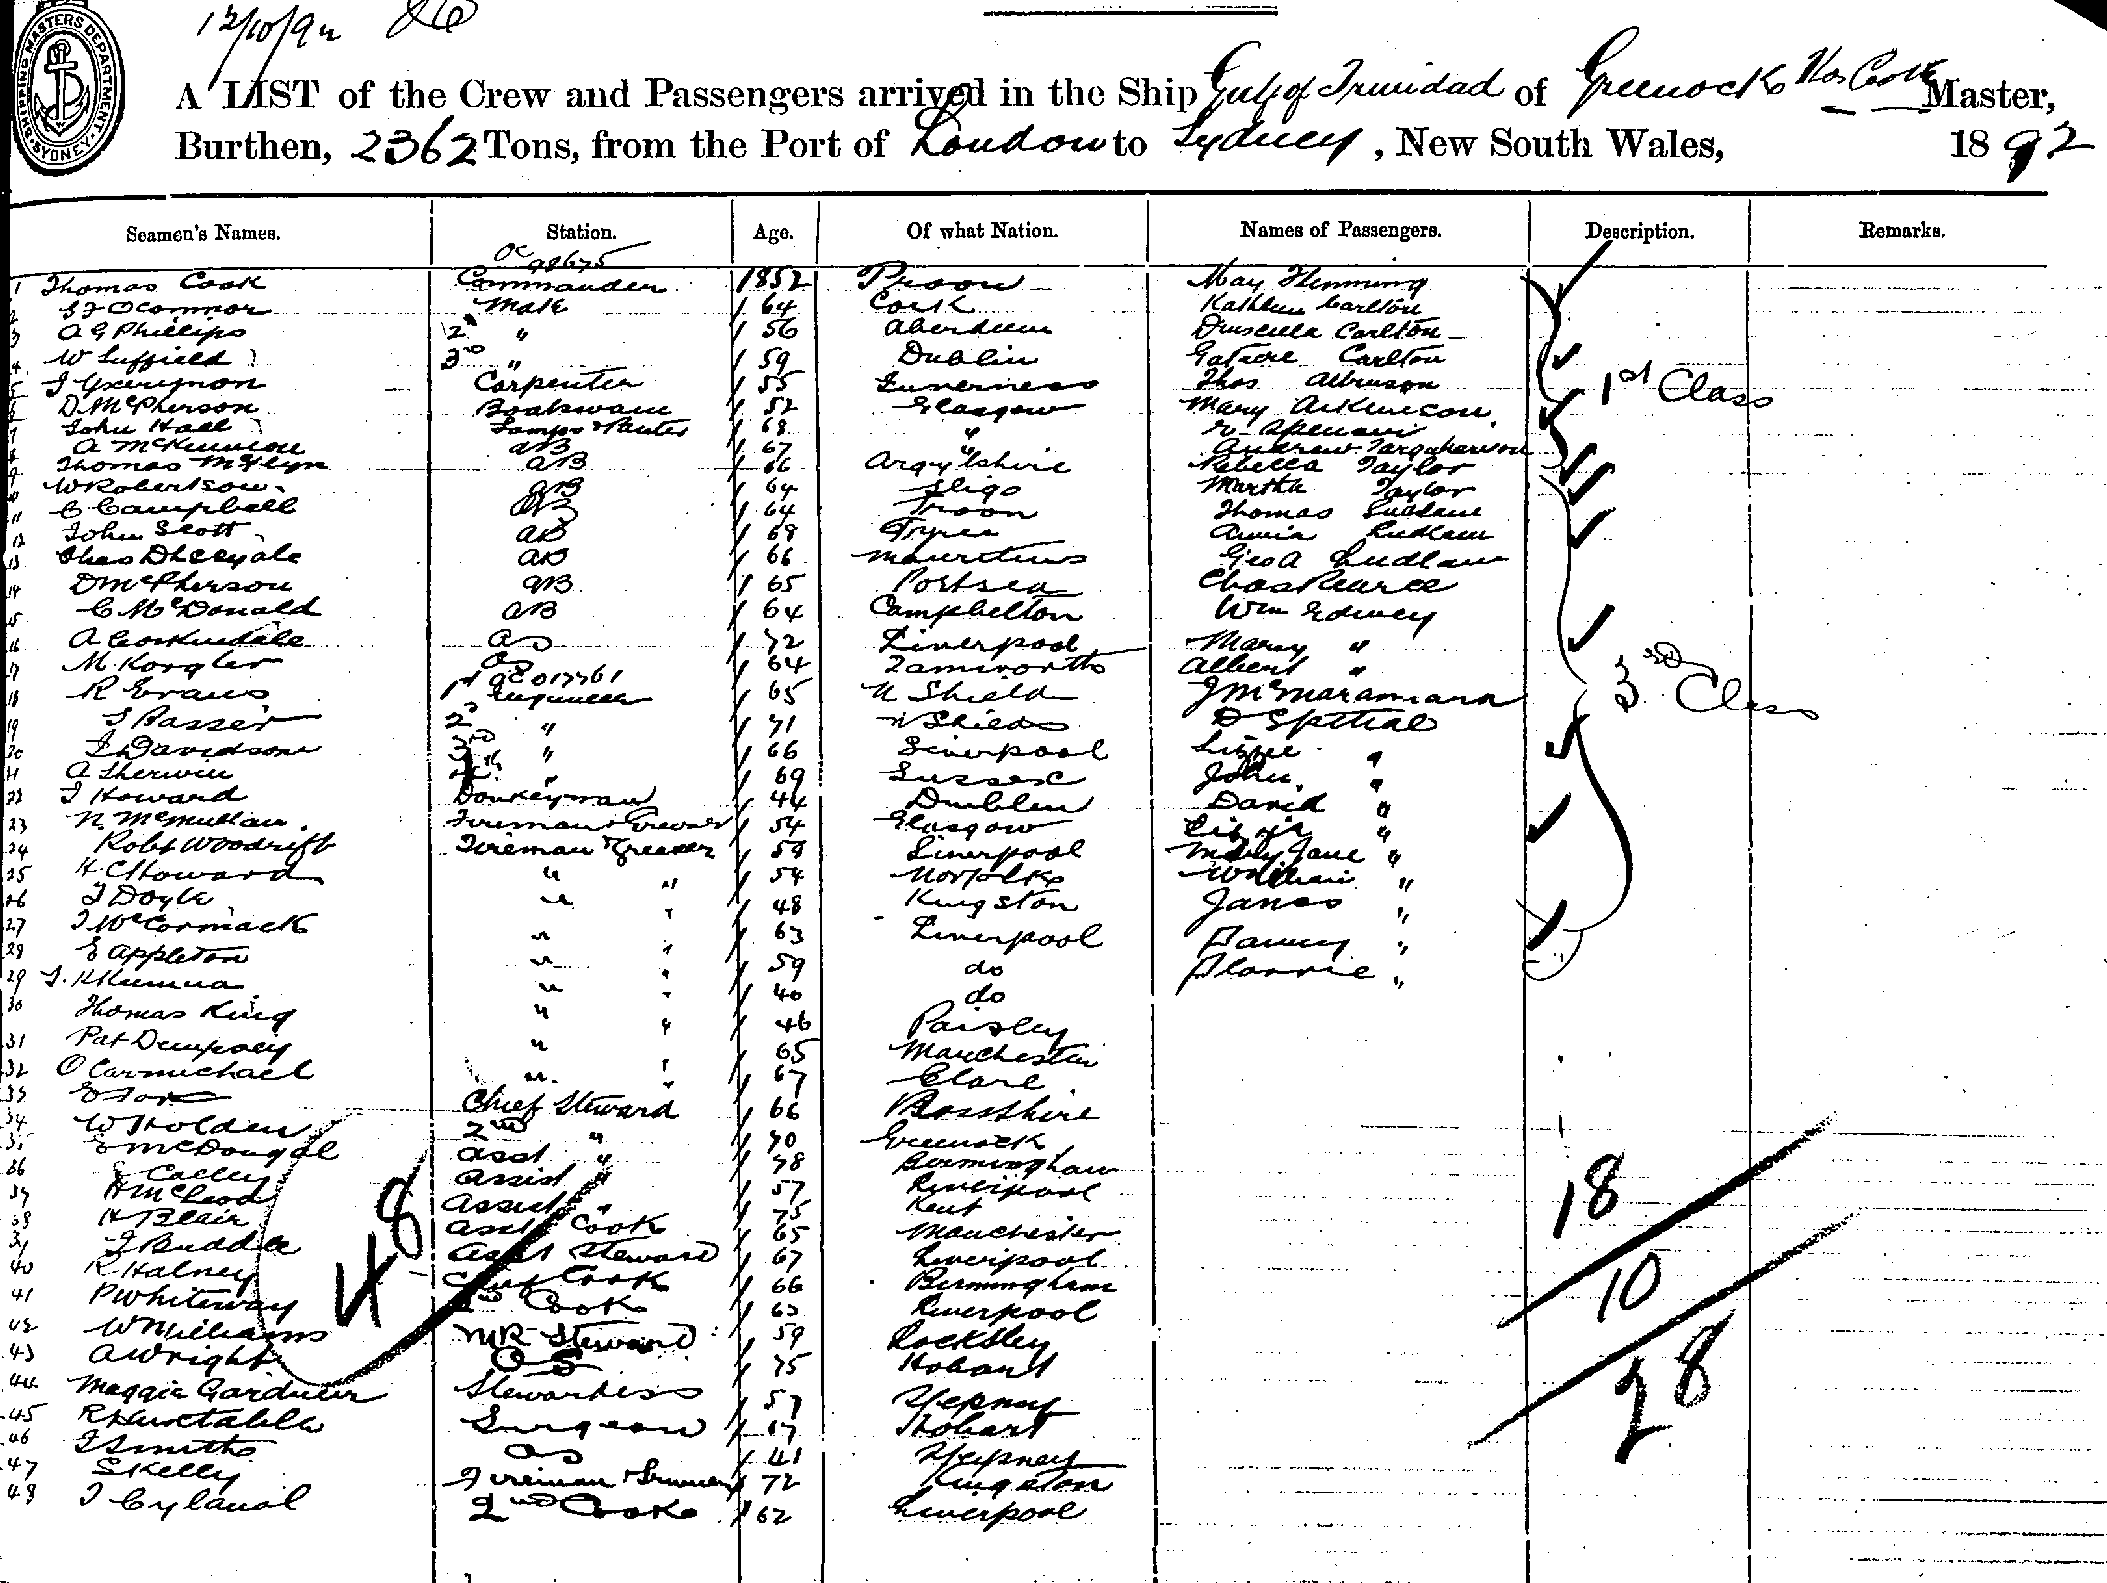 12/10/92
SHIPPING MASTERS DEPARTMENT. SYDNEY
A LIST of the Crew and Passengers arrived in the Ship Gulf of Trinidad of Greenock Thos Cook Master,
Burthen, 2362 Tons, from the Port of London to Sydney, New South Wales, 1892
Seamen's Names. Station. Age. Of what Nation. Names of Passengers. Description. Remarks.
OC 98675
1 Thomas Cook Commander 1852 Troon May Flemming
2 O'Connor Mate 1 64 Cork Kathleen Carlton
3 A G Phillips 2nd " 1 56 Aberdeen Druscilla Carlton
4 W Suffield 3rd " 1 59 Dublin Carlton
5 Carpenter 1 55 Inverness Thos
1st Class
6 D McPherson Boatswain 1 52 Glasgow Mary
7 John Hall Lamps 1 68 "
8 A McKinnon AB 1 67 " Andrew Farquharson
9 Thomas AB 1 66 Argylshire Rebecca Taylor
10 W Robertson AB 1 64 Sligo Martha Taylor
11 C Campbell AB 1 64 Troon Thomas Ludlam
12 John Scott AB 1 68 Tyree Annie Ludlam
13 AB 1 66 Mauritius Geo A Ludlam
14 D McPherson AB 1 65 Portsea Chas Pearce
15 C McDonald AB 1 64 Campbelton Wm Edney
16 A OS 1 72 Liverpool Mary "
17 M. Korgler OS 1 64 Tamworth Albert "
18 R Evans 1st Engineer 1 65 N Shield
3rd Class
19 2nd " 1 71 N Shields D Spittal
20 J Davidson 3rd " 1 66 Liverpool Lizzie "
21 A Sherwin 4th " 1 69 Sussex John "
22 J Howard Donkeyman 1 44 Dublin David "
23 N. McMullan Fireman & 1 54 Glasgow "
24 Robt Woodrift Fireman & Greaser 1 59 Liverpool Mary Jane "
25 H C Howard " " 1 54 Norfolk William "
26 J Doyle " " 1 48 Kingston James "
27 J McCormack " " 1 63 Liverpool "
28 E Appleton " " 1 59 do "
29 " " 1 40 do
30 Thomas King " " 1 46 Paisley
31 Pat Dempsey " " 1 65 Manchester
32 O Carmichael " " 1 67 Clare
33 Chief Steward 1 66 Rossshire
34 W Holden 2nd " 1 70 Greenock
35 E McDougal Asst " 1 78 Birmingham
36 Calley Assist " 1 57 Liverpool
37 H McLeod Assist " 1 75 Kent
38 H Blair Asst Cook 1 65 Manchester
39 J Buddle Asst Steward 1 67 Liverpool
40 R Halney Chief Cook 1 66 Birmingham
41 P Whiteway 2nd Cook 1 63 Liverpool
42 W Williams Steward 1 59
43 A Wright OS 1 75 Hobart
44 Maggie Gardner Stewardess 1 57 Stepney
45 R Huxtable Surgeon 1 67 Hobart
46 J Smith OS 1 41 Stepney
47 S Kelly Fireman & 1 72 Kingston
48 J 2nd Cook 1 62 Liverpool
48
18
10
28